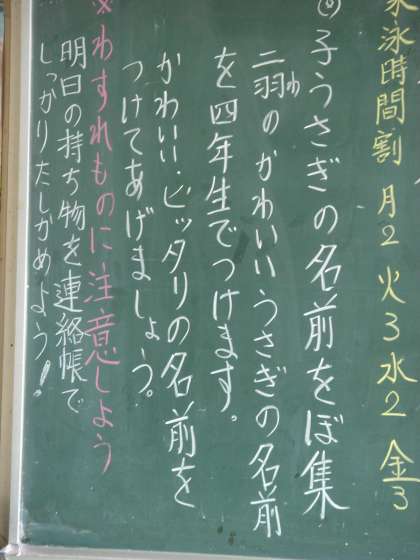 水泳時間割 月2 火3 水2 金3
◎子うさぎの名前をぼ集
二羽のかわいいうさぎの名前
を四年生でつけます。
かわいい・ピッタリの名前を
つけてあげましょう。
※わすれものに注意しよう
明日の持ち物を連絡帳で
しっかりたしかめよう!